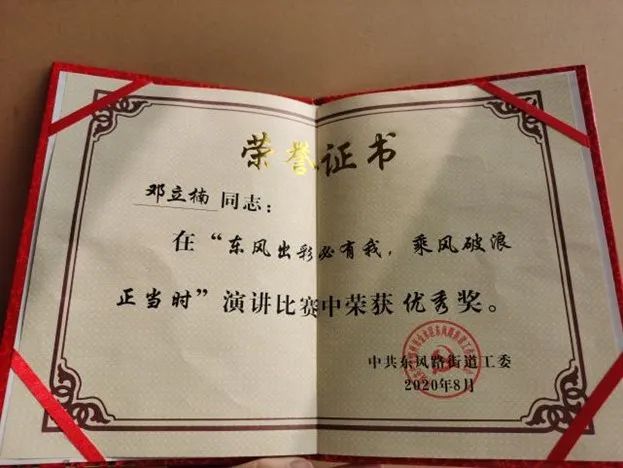 荣誉证书
邓立楠同志：
在“东风出彩必有我，乘风破浪
正当时”演讲比赛中荣获优秀奖。
中共东风路街道工委
2020年8月